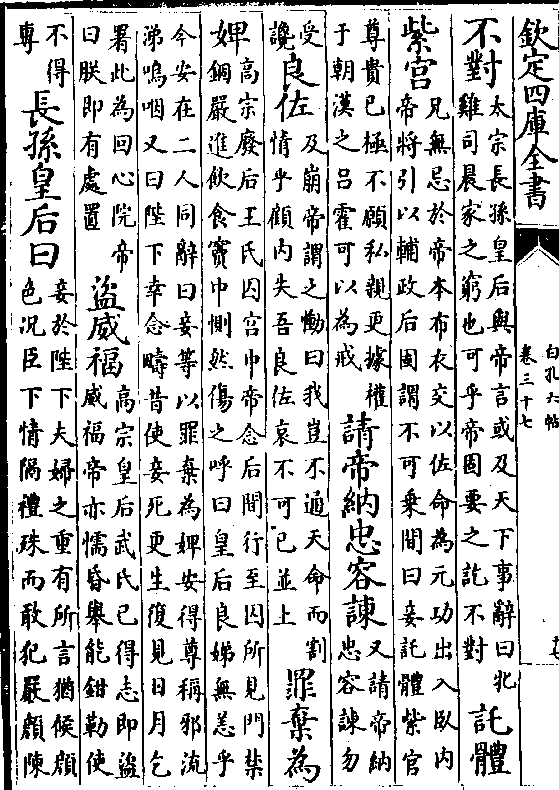 欽定四庫全書
白孔六帖
卷三十七
不對
太宗長孫皇后與帝言或及天下事辭曰北
雞司晨家之窮也可乎帝固要之訖不對
託體
紫宫
兄無忌於帝本布衣交以佐命為元功出入臥内
帝將引以輔政后固謂不可乘間曰妾託體紫宫
尊貴已極不願私親更據權
于朝漢之吕霍可以為戒
請帝納忠容諫
又請帝納
忠容諫勿
受
讒
良佐
及崩帝謂之慟曰我豈不通天命而割
情乎顧内失吾良佐哀不可已並上
罪棄為
婢
高宗廢后王氏囚宫中帝念后間行至囚所見門禁
錮嚴進飲食竇中惻然傷之呼曰皇后良娣無恙乎
今安在二人同辭曰妾等以罪棄為婢安得尊稱邪流
涕嗚咽又曰陛下幸念疇昔使妾死更生復見日月乞
署此為回心院帝
曰朕即有處置
盜威福
高宗皇后武氏已得志即盜
威福帝亦懦昏舉能鉗勒使
不得
專
長孫皇后曰
妾於陛下夫婦之重有所言猶候顔
色况臣下情隔禮珠而敢犯嚴顔陳